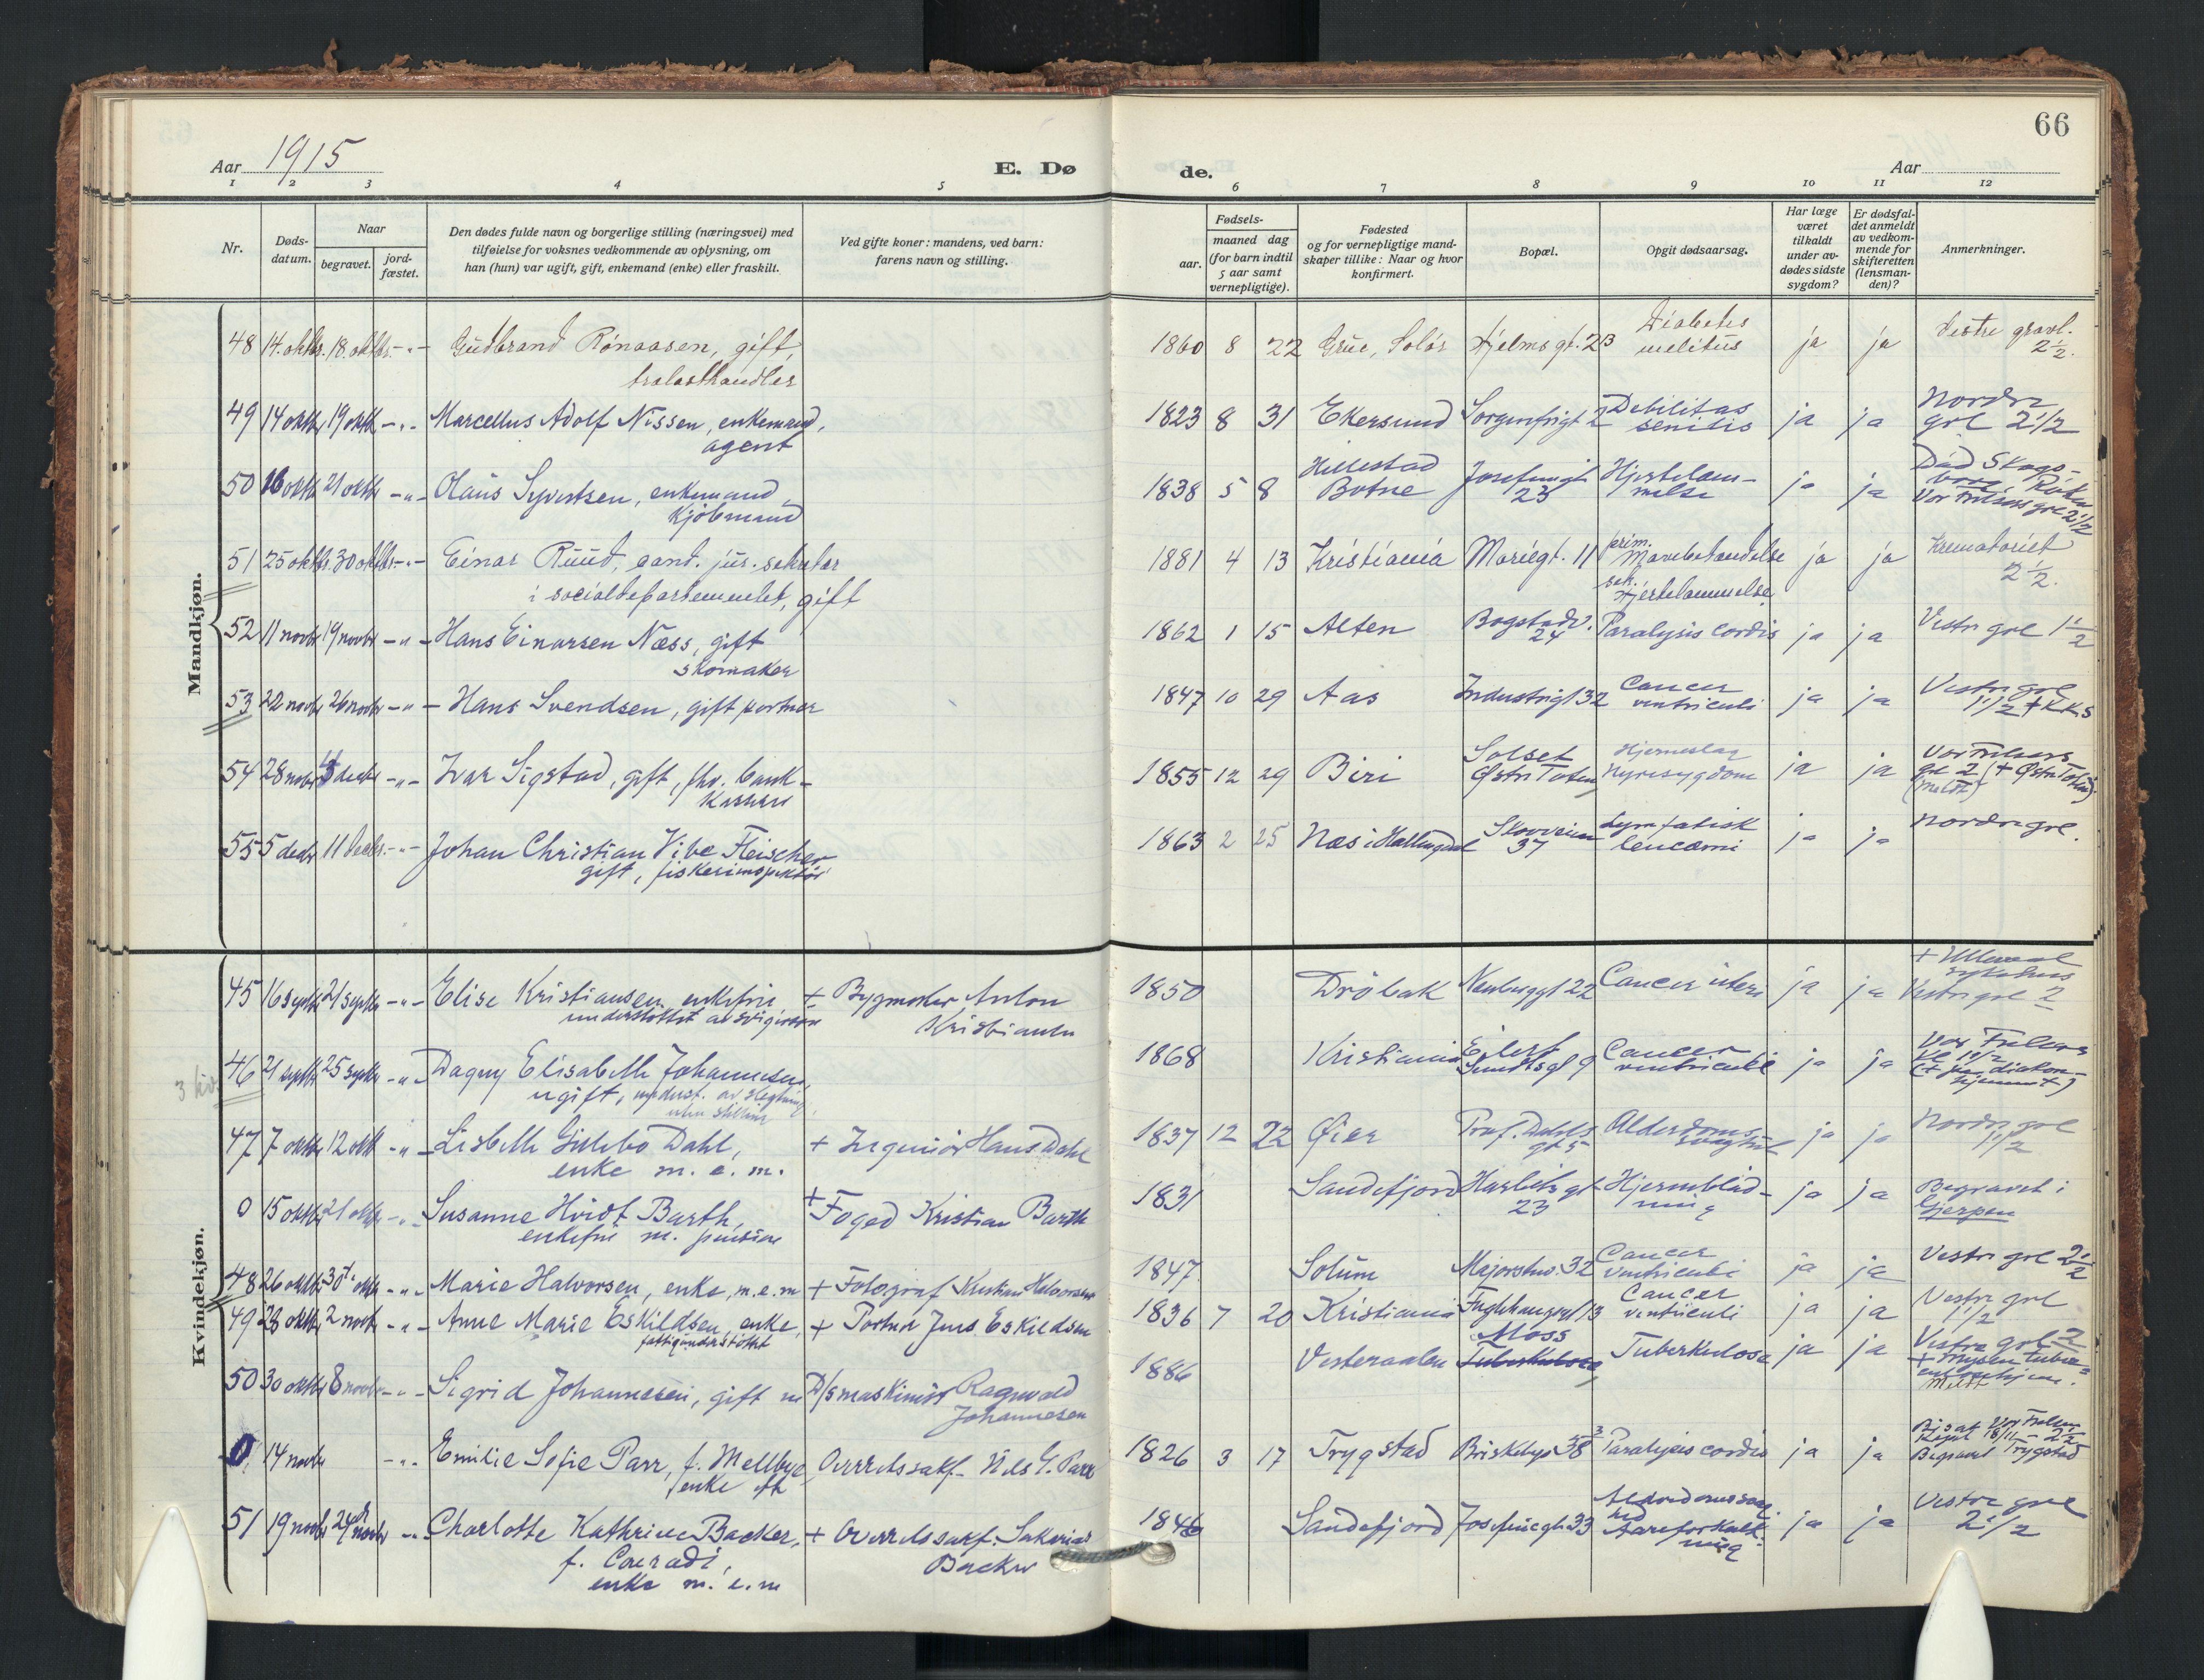 66
Aar 1915
E. Dø
de.
Aar
1 2 3 4 5 6 7 8 9 10 11 12
Nr.
Døds-
datum.
Naar
begravet.
jord-
fæstet.
Den dødes fulde navn og borgerlige stilling (næringsvei) med
tilføielse for voksnes vedkommende av oplysning, om
han (hun) var ugift, gift, enkemand (enke) eller fraskilt.
Ved gifte koner: mandens, ved barn:
farens navn og stilling.
Fødsels-
aar.
maaned dag
(for barn indtil
5 aar samt
vernepligtige).
Fødested
og for vernepligtige mand-
skaper tillike: Naar og hvor
konfirmert.
Bopæl.
Opgit dødsaarsag.
Har læge
været
tilkaldt
under av-
dødes sidste
sygdom?
Er dødsfal-
det anmeldt
av vedkom-
mende for
skifteretten
(lensman-
den)?
Anmerkninger.
Mandkjøn.
48 14. oktbr. 18. oktbr. -"- Gudbrand Rønaasen, gift, 1860 8 22 Grue, Solør Hjelmsgt. 23 Diabetes ja ja Vestre gravl.
trælasthandler melitus 2½.
49 14 oktbr 19 oktb -"- Marcellus Adolf Nissen, enkemand, 1823 8 31 Ekersund Sorgenfrigt 2 Debilitas ja ja Nordre
agent senilis grl 2 1/2
50 16 oktb 21 oktbr -"- Olaus Syvertsen, enkemand, 1838 5 8 Hillestad Josefinegt Hjertelam- ja ja Død Skogs-
kjøbmand Botne 23 melse borg, Røken
Vor Frelsers grl 2 1/2
51 25 oktbr. 30 oktbr. -"- Einar Ruud, cand. jur. sekretær 1881 4 13 Kristiania Mariegt. 11 prim. Mavebetændelse ja ja Krematoriet
i socialdepartementet, gift sek. Hjertelammelse 2½.
52 11 novbr 19 novbr -"- Hans Einarsen Næss, gift 1862 1 15 Alten Bogstadv. Paralysis cordis ja ja Vestre grl 1½
skomaker 24
53 22 novbr 26 novbr -"- Hans Svendsen, gift portner 1847 10 29 Aas Industrigt 32 Cancer ja ja Vestre grl
ventriculi 1 1/2 + K.K.S
54 28 novbr 4 decbr -"- Ivar Sigstad, gift, fhv. bank- 1855 12 29 Biri Solset Hjerneslag ja ja Vor Frelsers
kasserer Østre Toten nyresygdom gl 2 (+ Østre Toten)
(meldt)
55 5 decbr 11 decbr. -"- Johan Christian Vibe Fleischer 1863 2 25 Næs i Hallingdal Skovveien Lymfatisk ja ja Nordre grl.
gift, fiskeriinspektør 37 leucæmi
Kvindekjøn.
45 16 septbr 21 septbr -"- Elise Kristiansen, enkefrue + Bygmester Anton 1850 Drøbak Neubergt 22 Cancer uteri ja ja + Ullevaal
understøttet av svigersøn Kristiansen sykehus
Vestre grl 2
3 kv
46 21 septbr 25 septbr -"- Dagny Elisabeth Johannesen, 1868 Kristiania Eilert Cancer ja ja Vor Frelsers
ugift, underst. av slegtning, Sundtsgt 9 ventriculi kl 1 1/2
uten stilling (+ paa diakon-
hjemmet)
47 7 oktbr 12 oktb -"- Lisbeth Dahl, + Ingeniør Hans Dahl 1837 12 22 Øier Prof. Dahls Alderdoms- ja ja Nordre grl
enke m. e. m. gt 5 svaghet 1 1/2
0 15 oktbr 21 oktbr -"- Susanne Hvidt Barth, + Foged Kristian Barth 1831 Sandefjord 23 Hjerneblød- ja ja Begravet i
enkefrue m. pension ning Gjerpen
48 26 oktbr 30 oktbr -"- Marie Halvorsen, enke, m.e.m + Fotograf Kristian Halvorsen 1847 Solum Majorstuv. 32 Cancer ja ja Vestre grl 2½
ventriculi
49 28 oktbr 2 novb -"- Anne Marie Eskildsen, enke, + Portner Jens Eskildsen 1836 7 20 Kristiania Fuglehauggt 13 Cancer ja ja Vestre grl
fattigunderstøttet ventriculi 1 1/2
50 30 oktbr 8 novbr -"- Sigrid Johannesen, gift m D/Smaskinist Ragnvald 1886 Vesteraalen Moss Tuberkulose ja ja Vestre grl 2
Johannesen Tuberkulose + Mysen tuber-
Meldt
0 14 novbr -"- Emilie Sofie Parr, f. Mellbye, Overretssakf. Nils G. Parr 1826 3 17 Trygstad Briskebyv 38 Paralysis cordis ja ja Bisat Vor Frelsers
enke efter 18/11 - 2½
Begravet Trygstad
51 19 novbr 24 novbr -"- Charlotte Kathrine Backer, + Overretssakf. Sakarias 1846 Sandefjord Josefinegt 33 Alderdomssvag. ja ja Vestre grl
f. Conradi, Backer hed 2 1/2
enke m. e. m Aareforkalk-
ning